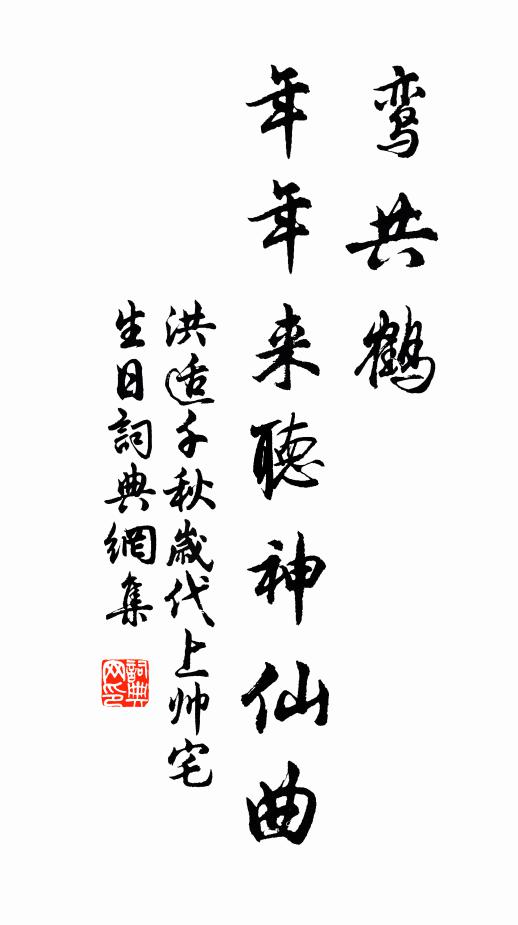 鸾共鹤
年年来聽神仙曲
洪适千秋歲代上帅宅
生日詞典網集
詞典
网印